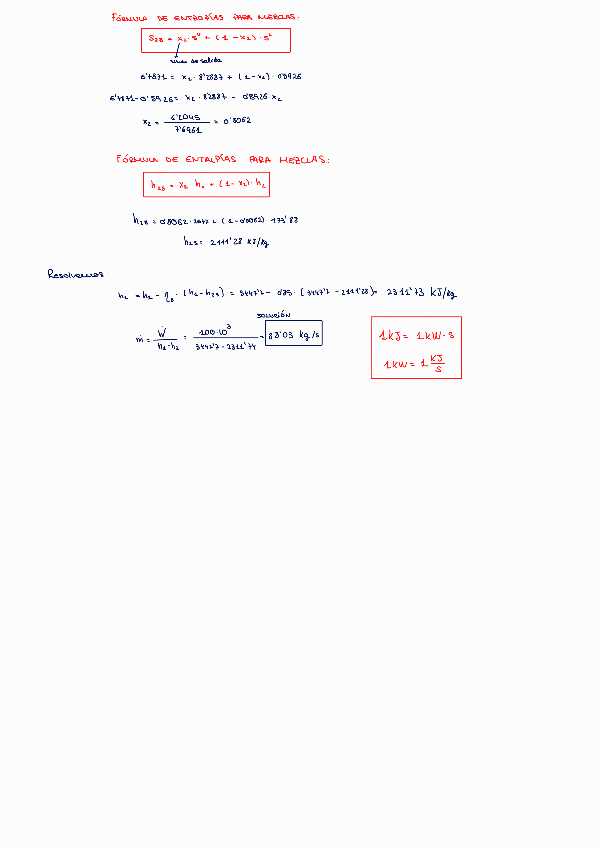 FÓRMULA DE ENTROPÍAS PARA MEZCLAS:
S2s = x2 · s" + (1 - x2) · s'
6'7871 = x2 · 8'2887 + (1-x2) · 0'5926
6'7871-0'5926= x2 · 8'2887 - 0'5926·x2
x2 = 6'2045 / 7'6961 = 0'8062
FÓRMULA DE ENTALPÍAS PARA MEZCLAS:
h2s = x2 · h" + (1-x2) · h'
h2s = 0'8062 · + (1-0'8062) · 173'88
h2s = 2111'28 kJ/kg
Resolvemos
h2 = h1 - ηs · (h1-h2s) = 3447'7 - 0'85 · (3447'7 - 2111'28)= 2311'73 kJ/kg
SOLUCIÓN
ṁ = Ẇ / h1-h2 = 100·10³ / 3447'7 - 2311'74 = 88'03 kg/s
1kJ = 1kW·s
1kW = 1 kJ/s